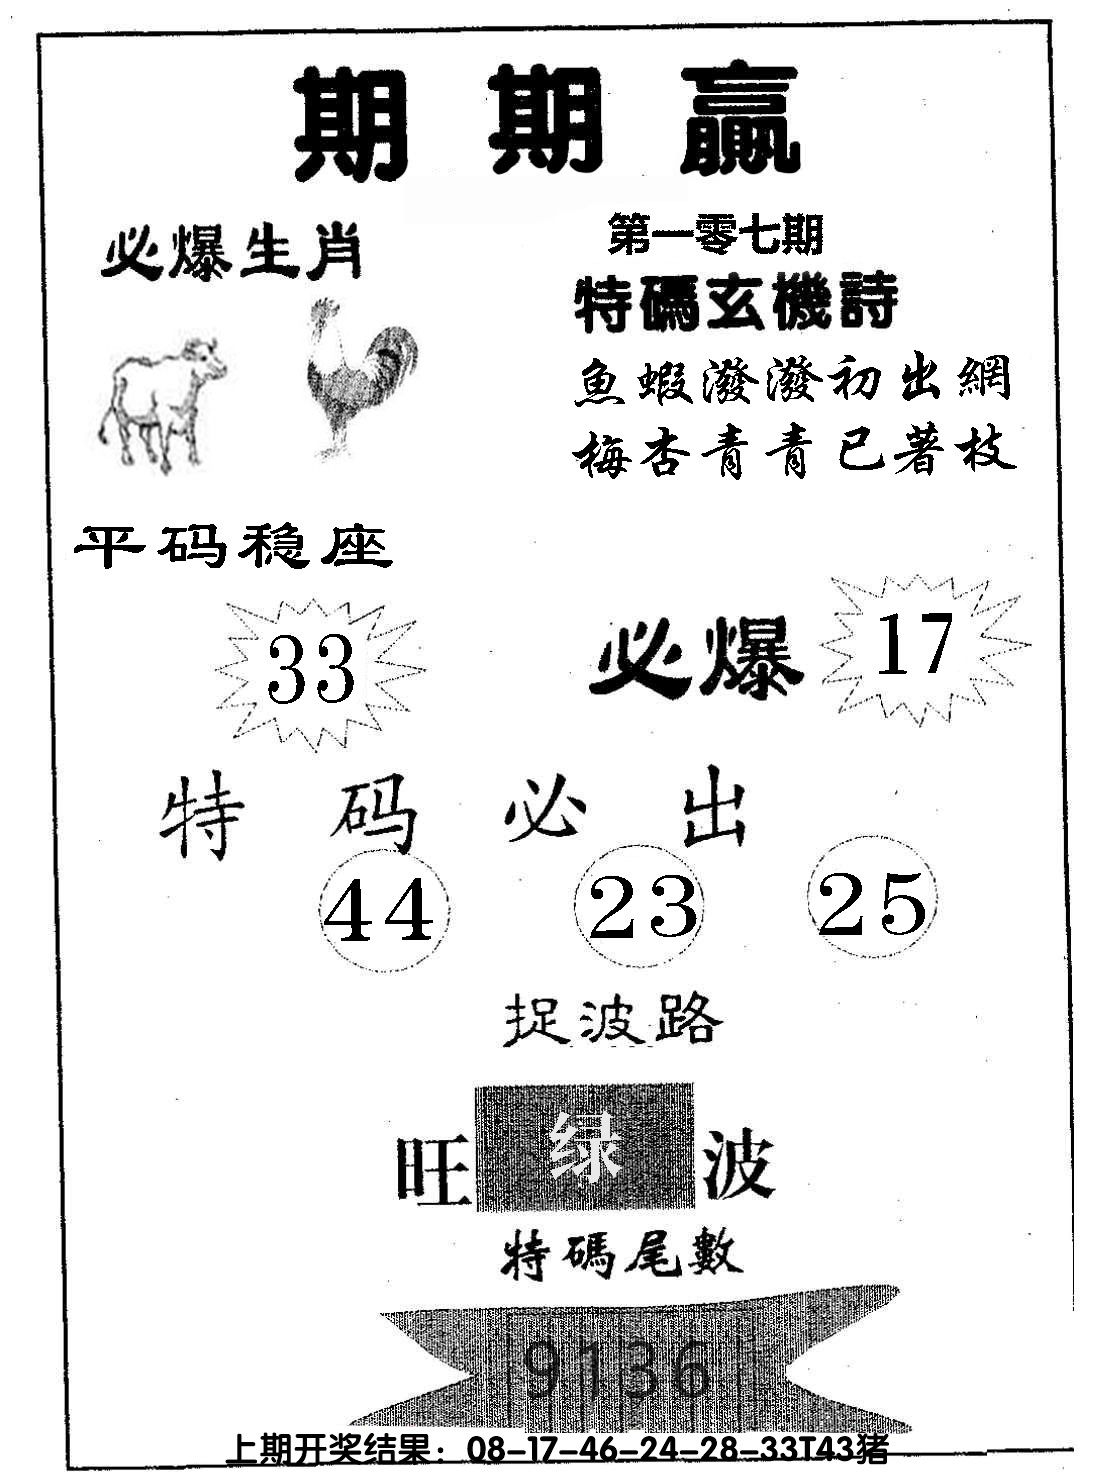 期期贏
必爆生肖
第一零七期
特碼玄機詩
魚蝦潑潑初出網
梅杏青青已著枝
平码稳座
33
必爆
17
特码必出
44 23 25
捉波路
旺绿波
特碼尾數
9136
上期开奖结果：08-17-46-24-28-33T43猪